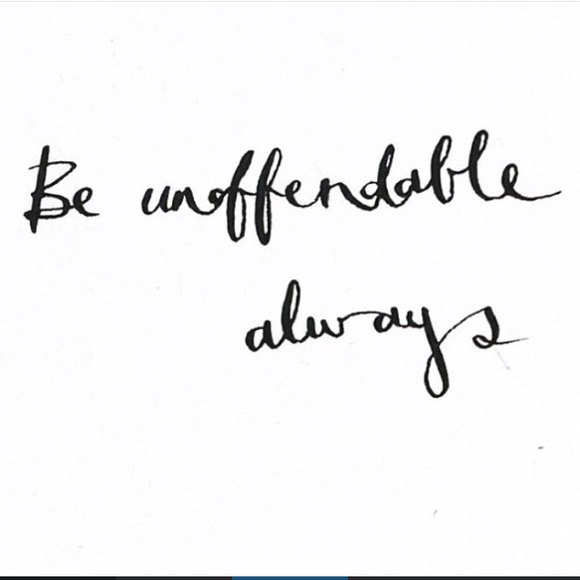 Be unoffendable
always